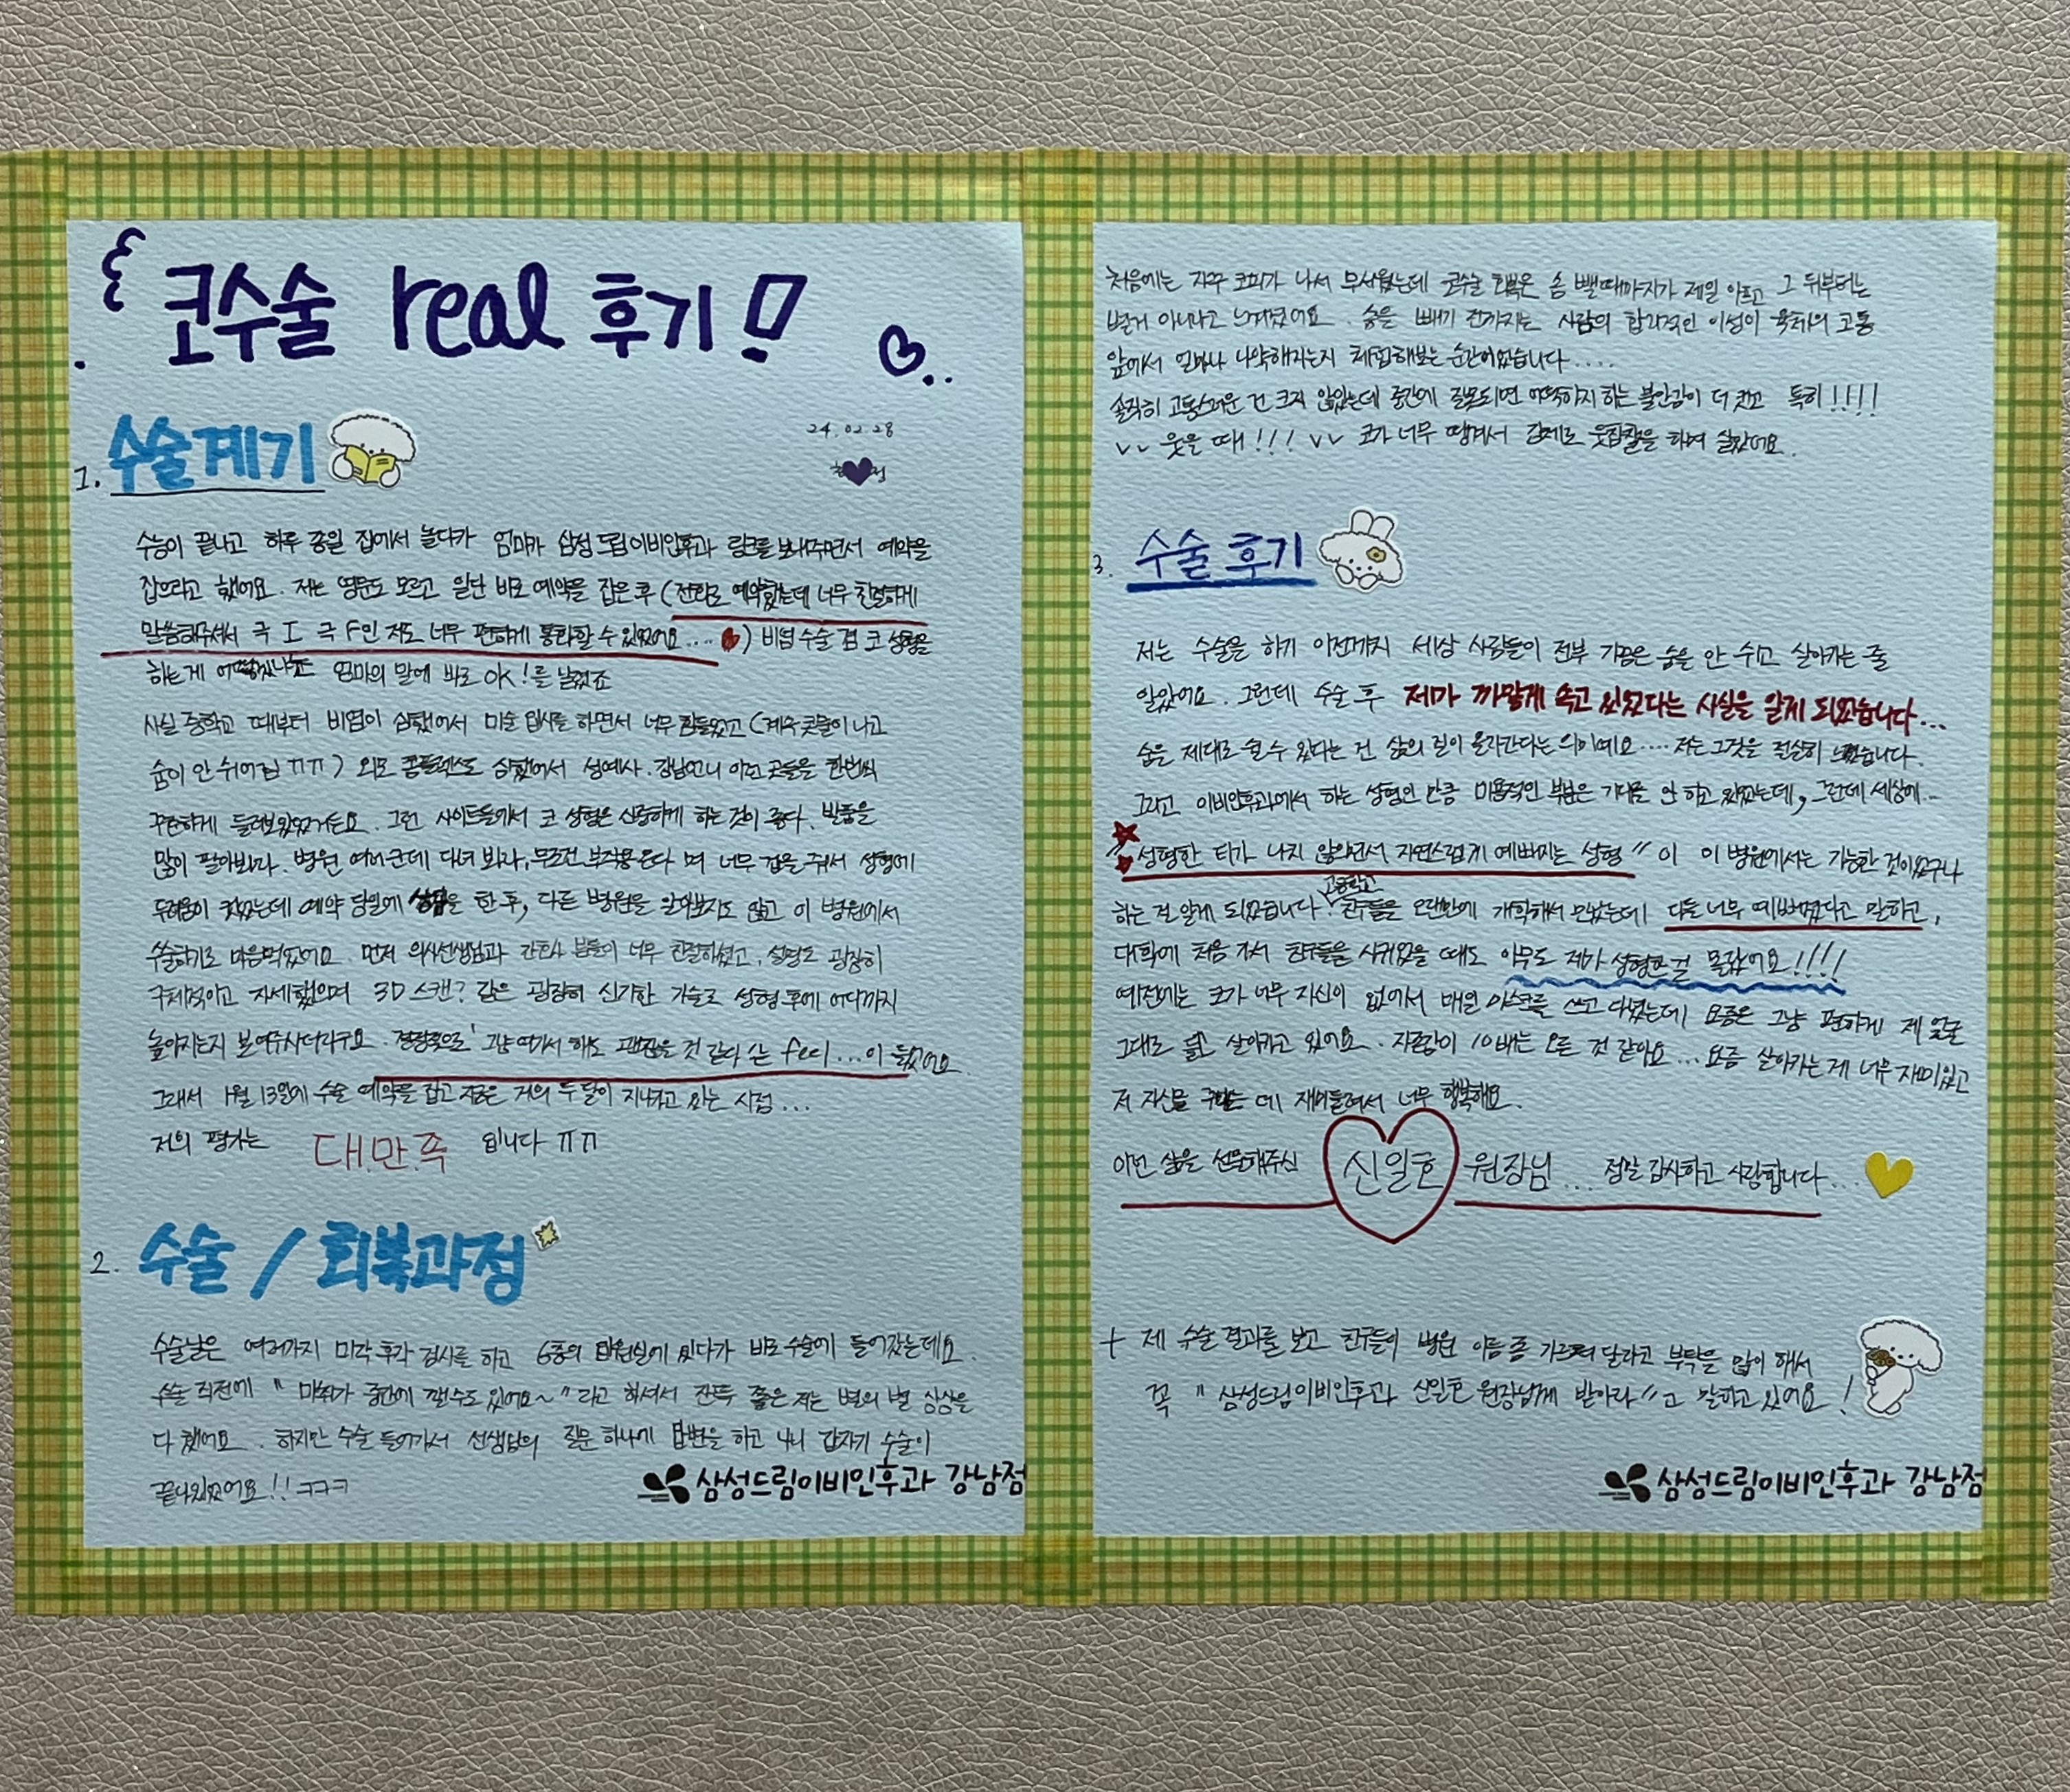 코수술 real 후기!!
24.02.28
1. 수술계기
수능이 끝나고 하루 종일 집에서 놀다가 엄마가 삼성드림이비인후과 링크를 보내주면서 예약을
잡으라고 했어요. 저는 영문도 모르고 일단 바로 예약을 잡은 후 (전화로 예약했는데 너무 친절하게
말씀해주셔서 극 I 극 F인 저도 너무 편하게 통화할 수 있었어요....) 비염 수술 겸 코 성형을
하는게 어떻겠냐는 엄마의 말에 바로 OK!를 날렸죠
사실 중학교 때부터 비염이 심했어서 미술 입시를 하면서 너무 힘들었고 (계속 콧물이 나고
숨이 안 쉬어짐 ㅠㅠ) 외모 콤플렉스도 심했어서 성예사. 강남언니 이런 곳들을 한번씩
꾸준하게 들려보았었거든요. 그런 사이트들에서 코 성형은 신중하게 하는 것이 좋다. 발품을
많이 팔아봐라. 병원 여러군데 다녀 봐라, 무조건 부작용 온다 며 너무 겁을 줘서 성형에
두려움이 컸었는데 예약 당일에 상담을 한 후, 다른 병원을 알아보지도 않고 이 병원에서
수술하기로 마음먹었어요. 먼저 의사선생님과 간호사 분들이 너무 친절하셨고, 설명도 굉장히
구체적이고 자세했으며 3D 스캔? 같은 굉장히 신기한 기술로 성형 후에 어디까지
높아지는지 보여주시더라구요. 결정적으로 '그냥 여기서 해도 괜찮을 것 같다' 는 feel...이 들었어요.
그래서 1월 13일에 수술 예약을 잡고 지금은 거의 두 달이 지나가고 있는 시점...
저의 평가는 대.만.족 입니다 ㅠㅠ
2. 수술 / 회복과정
수술날은 여러가지 미각 후각 검사를 하고 6층의 입원실에 있다가 바로 수술에 들어갔는데요.
수술 직전에 "마취가 중간에 깰수도 있어요~" 라고 하셔서 잔뜩 쫄은 저는 별의 별 상상을
다 했어요. 하지만 수술 들어가서 선생님의 질문 하나에 답변을 하고 나니 갑자기 수술이
끝나있었어요!! ㅋㅋㅋ
삼성드림이비인후과 강남점
처음에는 자꾸 코피가 나서 무서웠는데 코수술 회복은 솜 뺄때까지가 제일 아프고 그 뒤부터는
별거 아니라고 느껴졌어요. 솜을 빼기 전까지는 사람의 합리적인 이성이 육체의 고통
앞에서 얼마나 나약해지는지 체험해보는 순간이었습니다....
솔직히 고통스러운 건 크지 않았는데 중간에 잘못되면 어떡하지 하는 불안감이 더 컸고 특히!!!!
vv 웃을 때!!! vv 코가 너무 땡겨서 강제로 웃참챌을 하며 살았어요.
3. 수술 후기
저는 수술을 하기 이전까지 세상 사람들이 전부 가끔은 숨을 안 쉬고 살아가는 줄
알았어요. 그런데 수술 후 제가 까맣게 속고 있었다는 사실을 알게 되었습니다...
숨을 제대로 쉴 수 있다는 건 삶의 질이 올라간다는 의미예요.... 저는 그것을 절실히 느꼈습니다.
그리고 이비인후과에서 하는 성형인 만큼 미용적인 부분은 기대를 안 하고 있었는데, 그런데 세상에..
"성형한 티가 나지 않으면서 자연스럽게 예뻐지는 성형" 이 이 병원에서는 가능한 것이었구나
하는 걸 알게 되었습니다. 고등학교 친구들을 오랜만에 개학해서 만났는데 다들 너무 예뻐졌다고 말하고,
대학에 처음 가서 친구들을 사귀었을 때도 아무도 제가 성형한걸 몰랐어요!!!!
예전에는 코가 너무 자신이 없어서 매일 마스크를 쓰고 다녔는데 요즘은 그냥 편하게 제 얼굴
그대로 들고 살아가고 있어요. 자존감이 10배는 오른 것 같아요... 요즘 살아가는게 너무 재미있고
저 자신을 꾸미는 데 재미들려서 너무 행복해요.
이런 삶을 선물해주신 신일호 원장님... 정말 감사하고 사랑합니다...
+ 제 수술 결과를 보고 친구들이 병원 이름 좀 가르쳐 달라고 부탁을 많이 해서
꼭 "삼성드림이비인후과 신일호 원장님께 받아라" 고 말하고 있어요!
삼성드림이비인후과 강남점